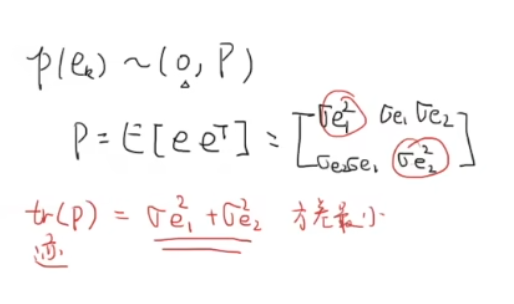 p(eₖ) ~ (0, P)
P = E[e eᵀ] = [σe₁² σe₁ σe₂
σe₂σe₁ σe₂²]
tr(P) = σe₁² + σe₂² 方差最小
迹